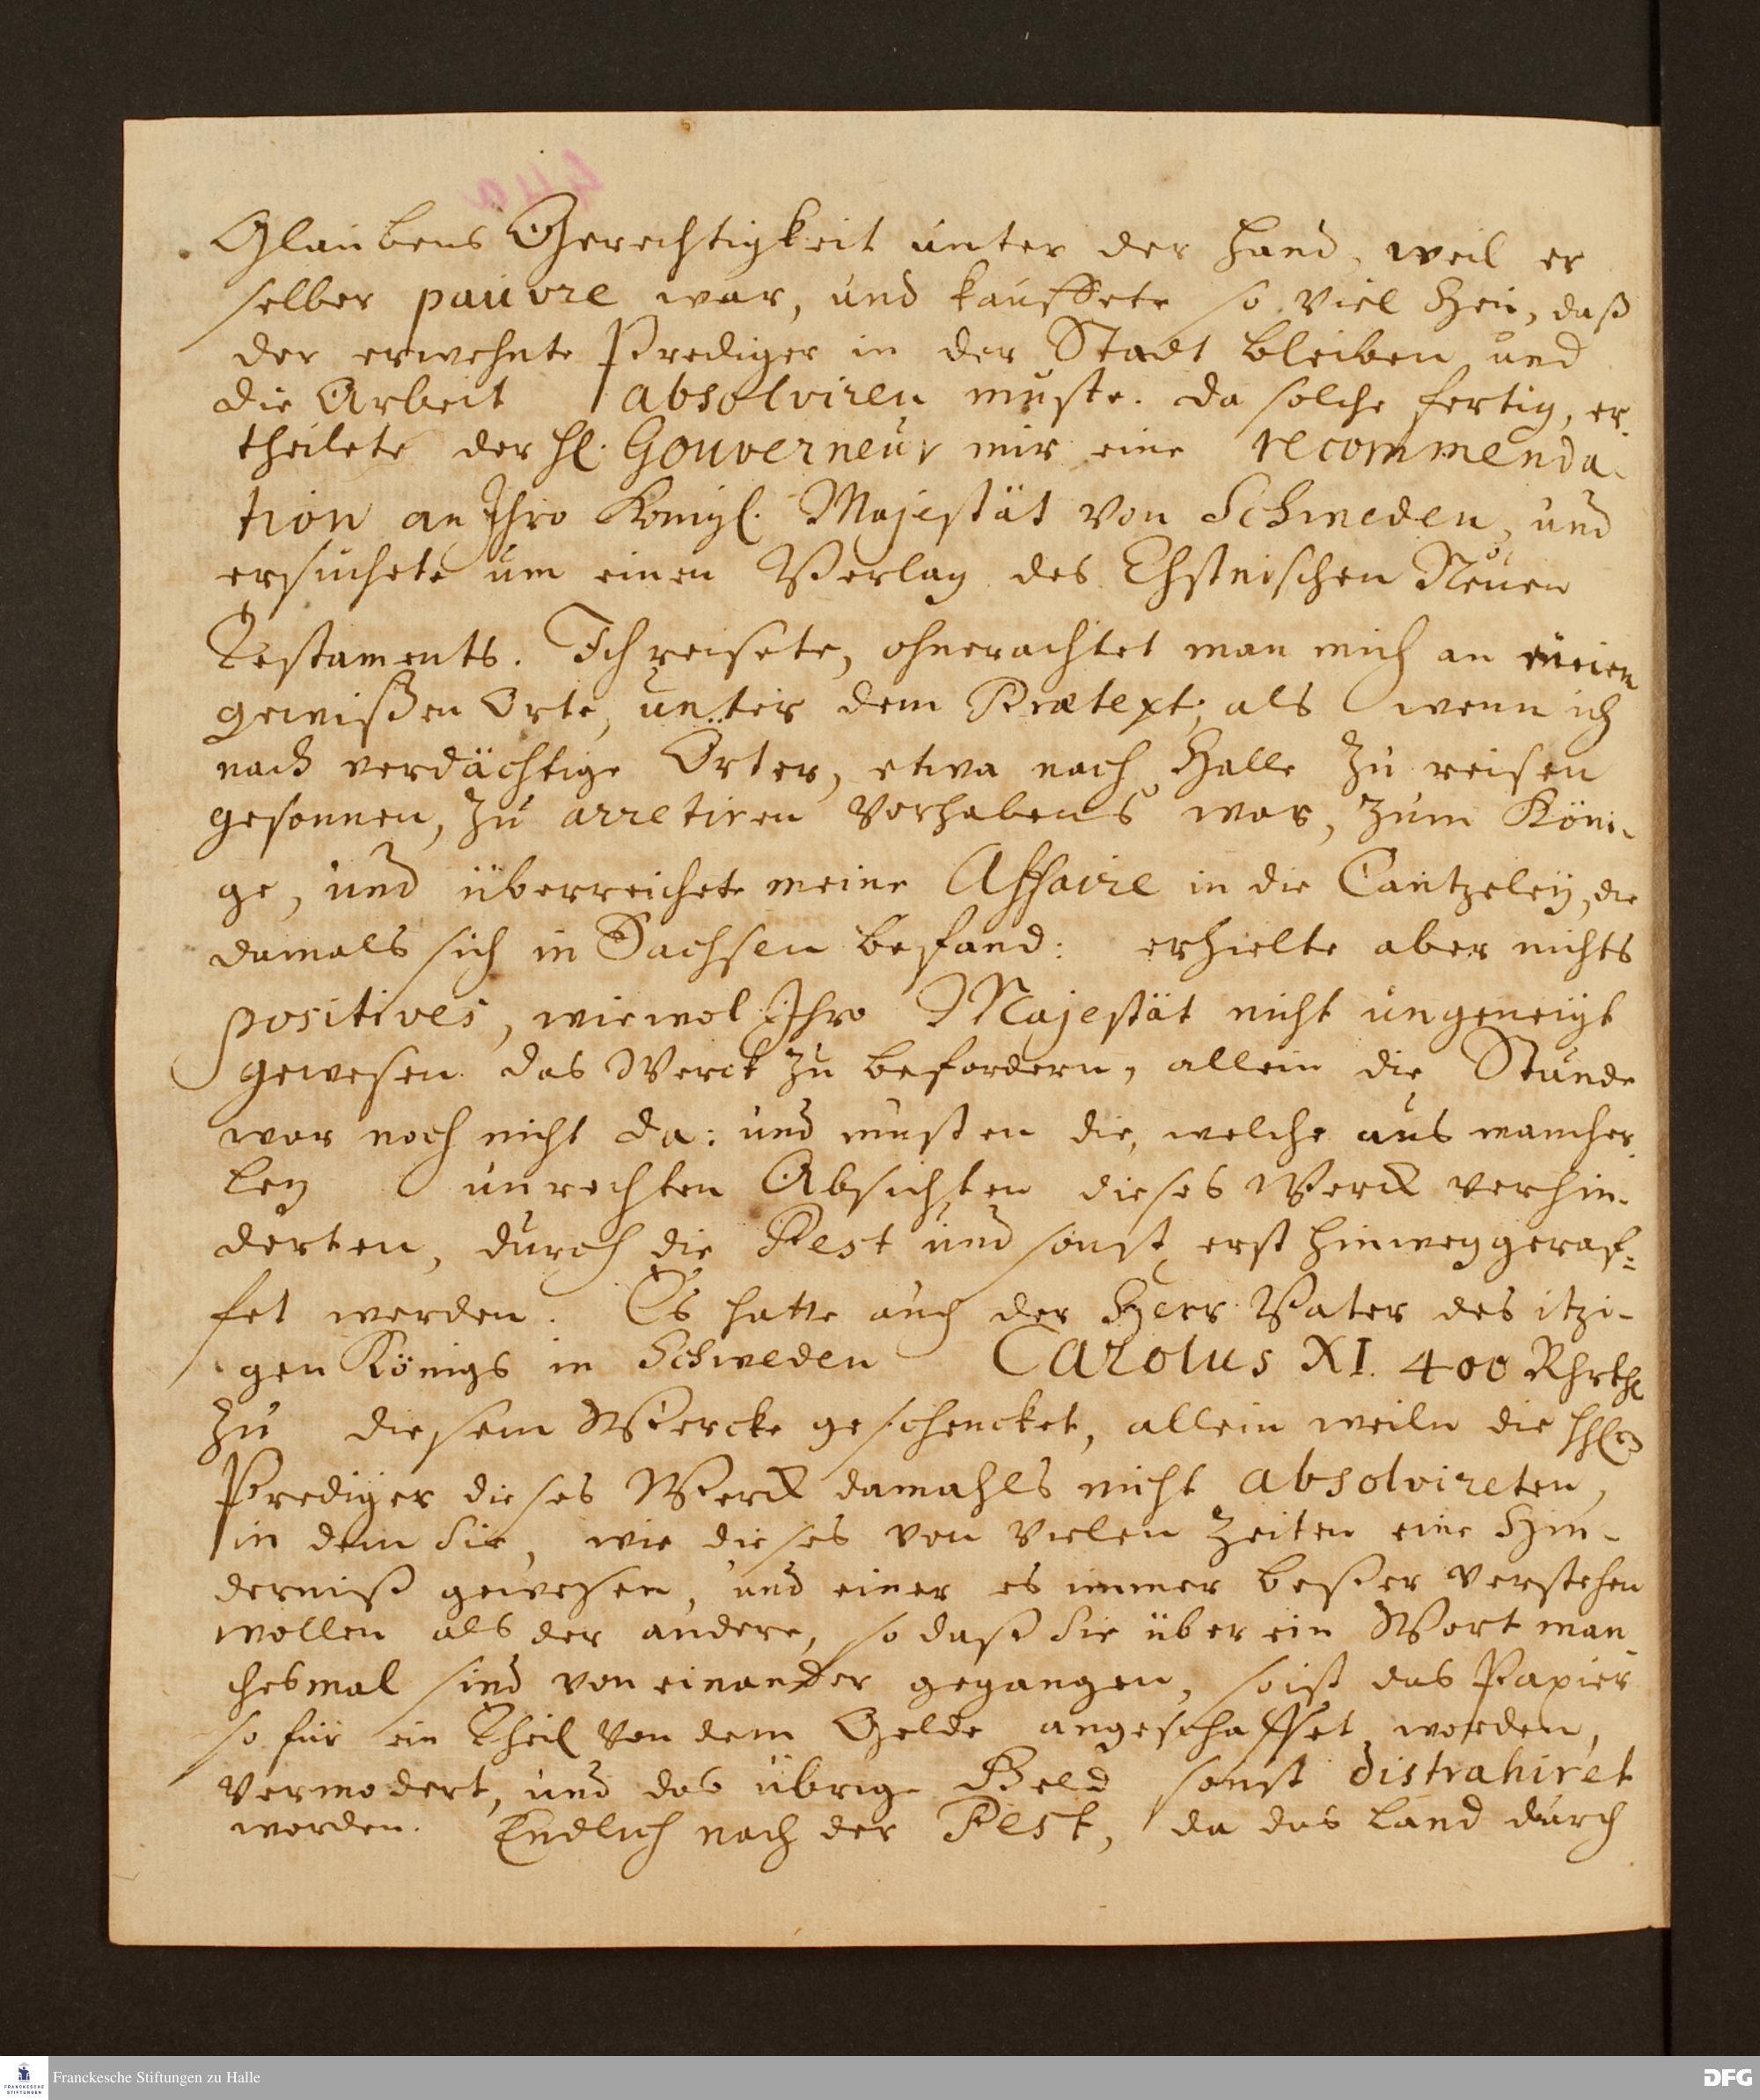 Glaubens Gerechtigkeit unter der Hand, weil er
selber pauvre war, und kauffete so viel Heu, daß
der erwehnte Prediger in der Stadt bleiben und
die Arbeit absolviren muste. da solche fertig, er-
theilete der Hl. Gouverneur mir eine recommenda-
tion an Ihro Königl. Majestät von Schweden, und
ersuchete um einen Verlag des Ehstnischen Neuen
Testaments. Ich reisete, ohnerachtet man mich an einem
gewißen Orte, unter dem Prætext, als wenn ich
nach verdächtige Örter, etwa nach Halle zu reisen
gesonnen, zu arretiren Vorhabens war, zum Köni-
ge, und überreichete meine Affaire in die Cantzeleÿ, die
damals sich in Sachsen befand: erhielte aber nichts
positives, wiewol Ihro Majestät nicht ungeneigt
gewesen das Werck zu befordern, allein die Stunde
war noch nicht da: und musten die, welche aus mancher-
ley unrechten Absichten dieses Werck verhin-
derten, durch die Pest und sonst erst hinweggeraf=
fet werden. Es hatte auch der Herr Vater des itzi-
gen Königs in Schweden Carolus XI. 400 Rhrthl
zu diesem Wercke geschencket, allein weiln die HhlEn
Prediger dieses Werck damahls nicht absolvireten,
in dem Sie, wie dieses von vielen Zeiten eine Hin-
derniß gewesen, und einer es immer beßer verstehen
wollen als der andere, so daß Sie über ein Wort man-
chesmal sind von einander gegangen, so ist das Papier
so für ein Theil von dem Gelde angeschaffet worden,
vermodert, und das übrige Geld sonst distrahiret
worden. Endlich nach der Pest, da das Land durch
Franckesche Stiftungen zu Halle
DFG